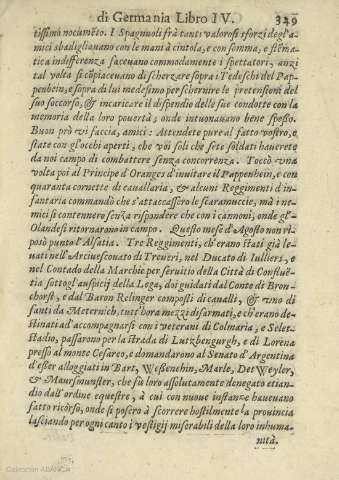 di Germania Libro IV. 349
tissimo nocumẽto. I Spagnuoli frà tanti valorosi sforzi degl'a-
mici sbadigliauano con le mani à cintola, e con somma, e stẽma-
tica indifferenza faceuano commodamente i spettatori, anzi
tal volta si cõpiaceuano di scherzare sopra i Tedeschi del Pap-
penhein, e sopra di lui medesimo per schernire le pretensioni del
suo soccorso, & incaricare il dispendio delle sue condotte con la
memoria della loro pouertà, onde intuonauano bene spesso.
Buon prò vi faccia, amici: Attendete pure al fatto vostro, e
state con gl'occhi aperti, che voi soli che sete soldati hauerete
da noi campo di combattere senza concorrenza. Toccò vna
volta poi al Principe d'Oranges d'inuitare il Pappenhein, e con
quaranta cornette di cauallaria, & alcuni Reggimenti d'in-
fantaria commandò che s'attaccassero le scaramuccie, mà i ne-
mici si contennere senza rispondere che con i cannoni, onde gl'-
Olandesi ritornarono in campo. Questo mese d'Agosto non ri-
posò punto l'Alsatia. Tre Reggimenti, ch'erano stati già le-
uati nell'Arciuescouato di Treueri, nel Ducato di Iulliers, e
nel Contado della Marchie per seruitio della Città di Confluẽ-
tia sotto gl'auspicij della Lega, doi guidati dal Conte di Bron-
chorst, e dal Baron Relinger composti di caualli, & vno di
fanti da Meternich, tutt'hora mezzi disarmati, e ch'erano de-
stinati ad accompagnarsi con i veterani di Colmaria, e Selet-
stadio, passarono per la strada di Lutzbengurgh, e di Lorena
presso al monte Cesareo, e domandarono al Senato d'Argentina
d'esser alloggiati in Bart, Weßenchin, Marle, Det Weyler,
& Maursmunster, che sù loro assolutamente denegato etian-
dio dall'ordine equestre, à cui con nuoue instanze haueuano
fatto ricorso, onde si posero à scorrere hostilmente la prouincia
lasciando per ogni canto i vestigij miserabili della loro inhuma-
nità.
Colección ABANCA